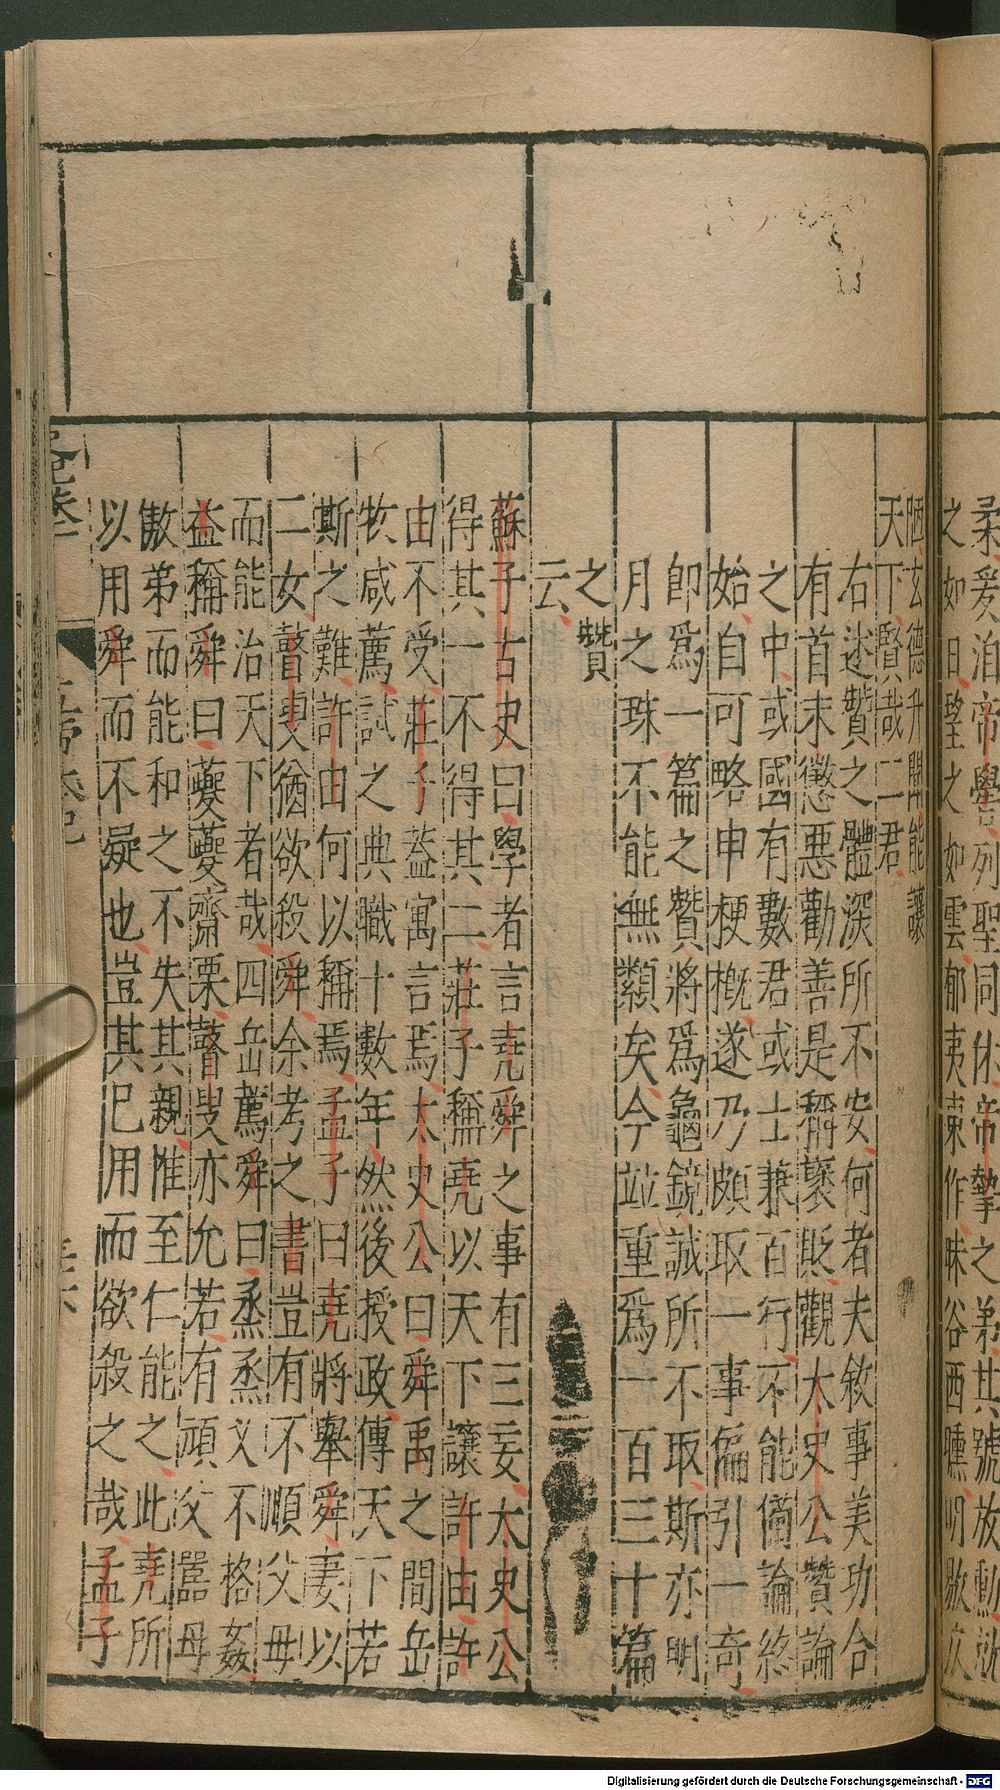 柔爰洎帝嚳列聖同休帝摯之弟其號放勳就
之如日望之如雲郁夷東作昧谷西曛明敭仄
陋玄德升聞能讓
天下賢哉二君
右述贊之體深所不安何者夫敘事美功合
有首末懲惡勸善是稱褒貶觀太史公贊論
之中或國有數君或士兼百行不能備論終
始自可略申梗概遂乃頗取一事偏引一奇
即爲一篇之贊將爲龜鏡誠所不取斯亦明
月之珠不能無纇矣今竝重爲一百三十篇
之贊
云
蘇子古史曰學者言堯舜之事有三妄太史公
得其一不得其二莊子稱堯以天下讓許由許
由不受莊子蓋寓言焉太史公曰舜禹之間岳
牧咸薦試之典職十數年然後授政傳天下若
斯之難許由何以稱焉孟子曰堯將舉舜妻以
二女瞽叟猶欲殺舜余考之書豈有不順父母
而能治天下者哉四岳薦舜曰烝烝乂不格姦
益稱舜曰夔夔齋栗瞽叟亦允若有頑父嚚母
傲弟而能和之不失其親惟至仁能之此堯所
以用舜而不疑也豈其已用而欲殺之哉孟子
五帝本紀
Digitalisierung gefördert durch die Deutsche Forschungsgemeinschaft - DFG